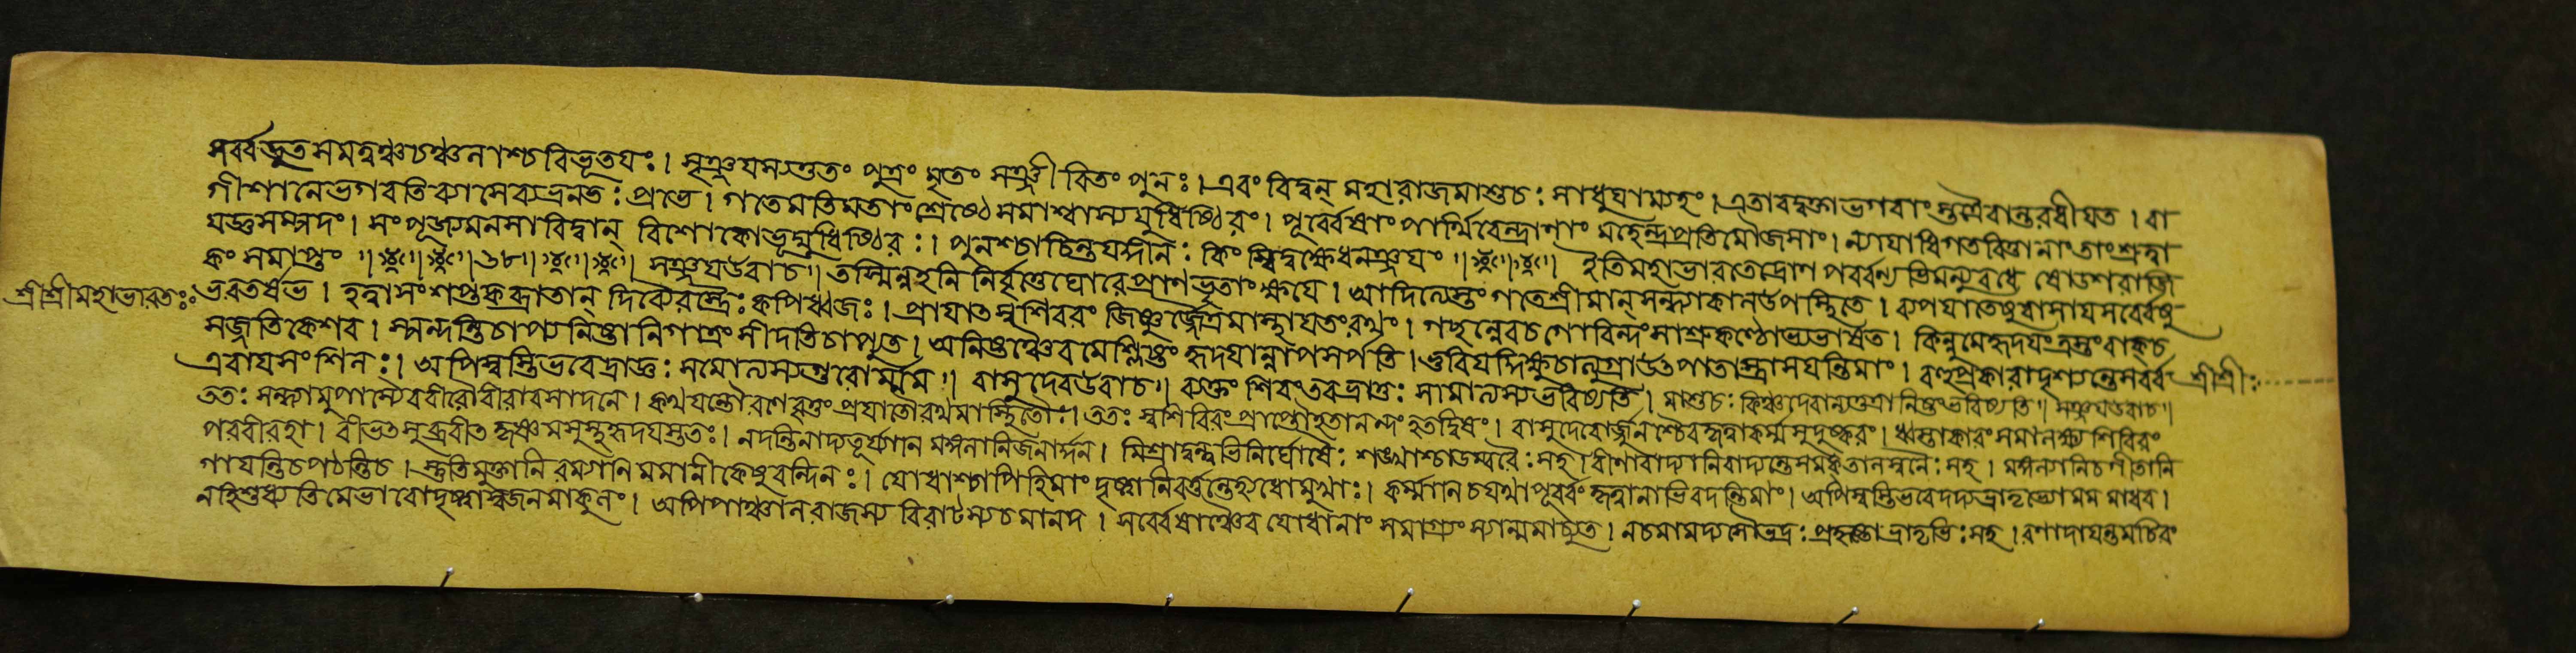 সর্ব্বভূত সমত্বঞ্চ চঞ্চলাশ্চ বিভূতয়ঃ। সৃঞ্জয়স্য তু তং পুত্রং মৃতং সঞ্জীবিতং পুনঃ। এবং বিদ্বন্ মহারাজ মা শুচঃ সাধুযাম্যহং। এতাবদুক্ত্বা ভগবাংস্তত্রৈবান্তরধীয়ত। বা
গীশানে ভগবতি ব্যাসে ব্যভ্রনভঃ প্রভে। গতে মতিমতাং শ্রেষ্ঠে সমাশ্বাস্য যুধিষ্ঠিরং। পূর্ব্বেষাং পার্থিবেন্দ্রাণাং মহেন্দ্রপ্রতিমৌজসাং। ন্যায়াধিগতবিত্তানাং তাং শ্রুত্বা
যজ্ঞসম্পদং। সংপূজ্য মনসা বিদ্বান্ বিশোকোভূদ্যুধিষ্ঠিরঃ। পুনশ্চাচিন্তয়দ্দীনঃ কিং স্বিদ্বক্ষ্যে ধনঞ্জয়ং॥ ইতি মহাভারতে দ্রোণপর্ব্বণ্যভিমন্যুবধে ষোডশরাজি
কং সমাপ্তং॥ ৬৮॥ সঞ্জয় উবাচ॥ তস্মিন্নহনি নির্বৃত্তে ঘোরে প্রাণভৃতাং ক্ষয়ে। আদিত্যেস্তং গতে শ্রীমান্ সন্ধ্যাকাল উপস্থিতে। ব্যপযাতেষু বাসায় সর্ব্বেষু
শ্রীশ্রীমহাভারতঃ ভরতর্ষভ। হত্বা সংশপ্তকব্রাতান্ দিব্যৈরস্ত্রৈঃ কপিধ্বজঃ। প্রায়াত স্বশিবিরং জিষ্ণুর্জ্জৈত্রমাস্থায় তং রথং। গচ্ছন্নেব চ গোবিন্দং সাশ্রুকণ্ঠোভ্যভাষত। কিন্নু মে হৃদয়ং ত্রস্তং বাক্ চ
সজ্জতি কেশব। স্পন্দন্তি চাপ্যনিষ্টানি গাত্রং সীদতি চাপ্যুত। অনিষ্টঞ্চৈব মে শ্লিষ্টং হৃদয়ান্নাপসর্পতি। ভুবি যদ্দিক্ষু চাত্যুগ্রা উৎপাতাস্ত্রাসয়ন্তি মাং। বহুপ্রকারা দৃশ্যন্তে সর্ব্ব শ্রীশ্রীঃ
এবাঘশংশিনঃ। অপি স্বস্তি ভবেদ্রাজ্ঞঃ সমাত্যস্য গুরোর্ম্মম॥ বাসুদেব উবাচ॥ ব্যক্তং শিবং তব ভ্রাতুঃ সামাত্যস্য ভবিষ্যতি। মা শুচঃ কিঞ্চিদেবান্যত্তত্রানিষ্টং ভবিষ্যতি॥ সঞ্জয় উবাচ॥
ততঃ সন্ধ্যামুপাস্যৈব বীরৌ বীরাবসাদনে। কথয়ন্তৌ রণে বৃত্তং প্রয়াতৌ রথমাস্থিতৌ। ততঃ স্বশিবিরং প্রাপ্তৌ হতানন্দং হতত্বিষং। বাসুদেবোর্জ্জুনশ্চৈব কৃত্বা কর্ম্ম সুদুষ্করং। ধ্বস্তাকারং সমালক্ষ্য শিবিরং
পরবীরহা। বীভৎসুরব্রবীত কৃষ্ণমসুস্থহৃদয়স্ততঃ। নদন্তি নাদ্য তূর্য্যাণি মঙ্গলানি জনার্দ্দন। মিশ্রা দুন্দুভিনির্ঘোষৈঃ শঙ্খাশ্চাডম্বরৈঃ সহ। বীণা বাদ্যানি বাদ্যন্তে সমকৃতালস্বনৈঃ সহ। মঙ্গল্যানি চ গীতানি
গায়ন্তি চ পঠন্তি চ। স্তুতিযুক্তানি রম্যাণি মমানীকেষু বন্দিনঃ। যোধাশ্চাপি হি মাং দৃষ্ট্বা নিবর্ত্তন্তে হ্যধোমুখাঃ। কর্ম্মাণি চ যথা পূর্ব্বং কৃত্বা নাভিবদন্তি মাং। অপি স্বস্তি ভবেদদ্য ভ্রাতৃভ্যো মম মাধব।
নহি শুধ্যতি মে ভাবো দৃষ্ট্বা স্বজনমাকুলং। অপি পাঞ্চালরাজস্য বিরাটস্য চ মানদ। সর্ব্বেষাঞ্চৈব যোধানাং সমাগ্র্যং স্যান্মমাচ্যুত। ন চ মামদ্য সৌভদ্রঃ প্রহৃষ্টো ভ্রাতৃভিঃ সহ। রণাদায়ান্তমচিরং